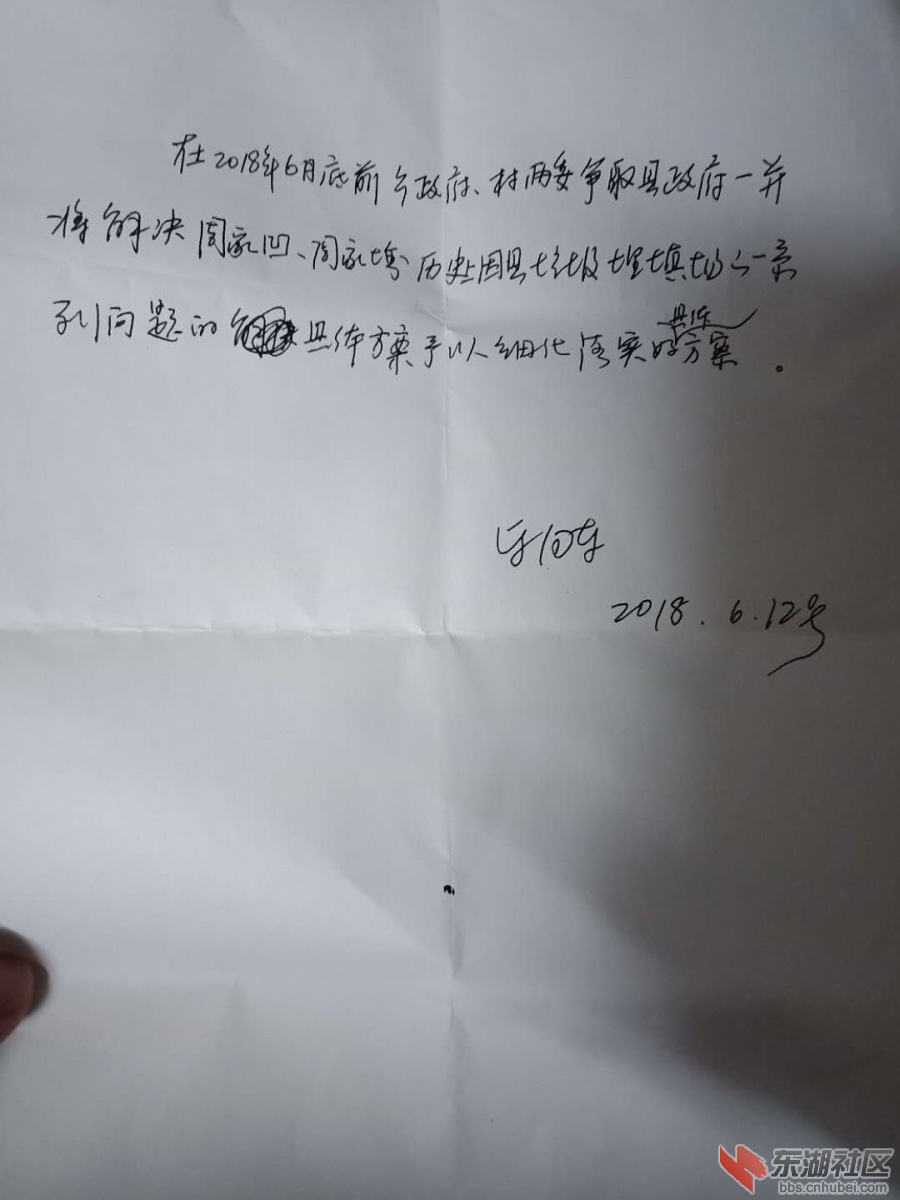 在2018年6月底前乡政府、村两委争取县政府一并
将解决周家凹、周家塆历史因县垃圾埋填场之一系
列问题的 具体方案予以细化落实的具体方案。
2018.6.12号
东湖社区
bbs.cnhubei.com